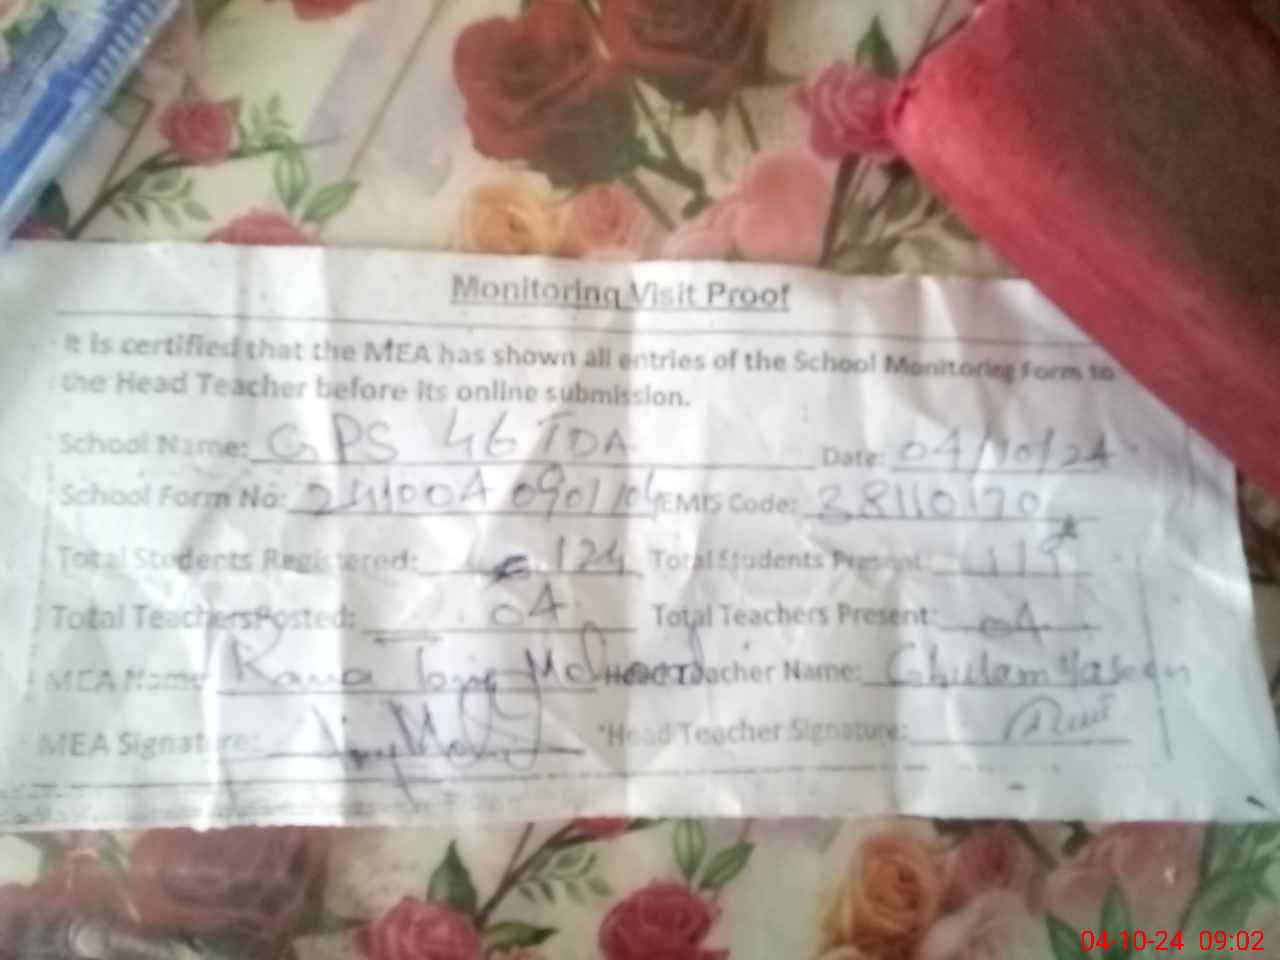 Monitoring Visit Proof
It is certified that the MEA has shown all entries of the School Monitoring Form to
the Head Teacher before its online submission.
School Name: GPS 46 TDA Date: 04/10/24
School Form No: EMIS Code: 38110170
Total Students Registered: 124 Total Students Present:
Total TeachersPosted: 04 Total Teachers Present: 04
MEA Name: Rana Head Teacher Name: Ghulam Yaseen
MEA Signature: *Head Teacher Signature:
04-10-24 09:02